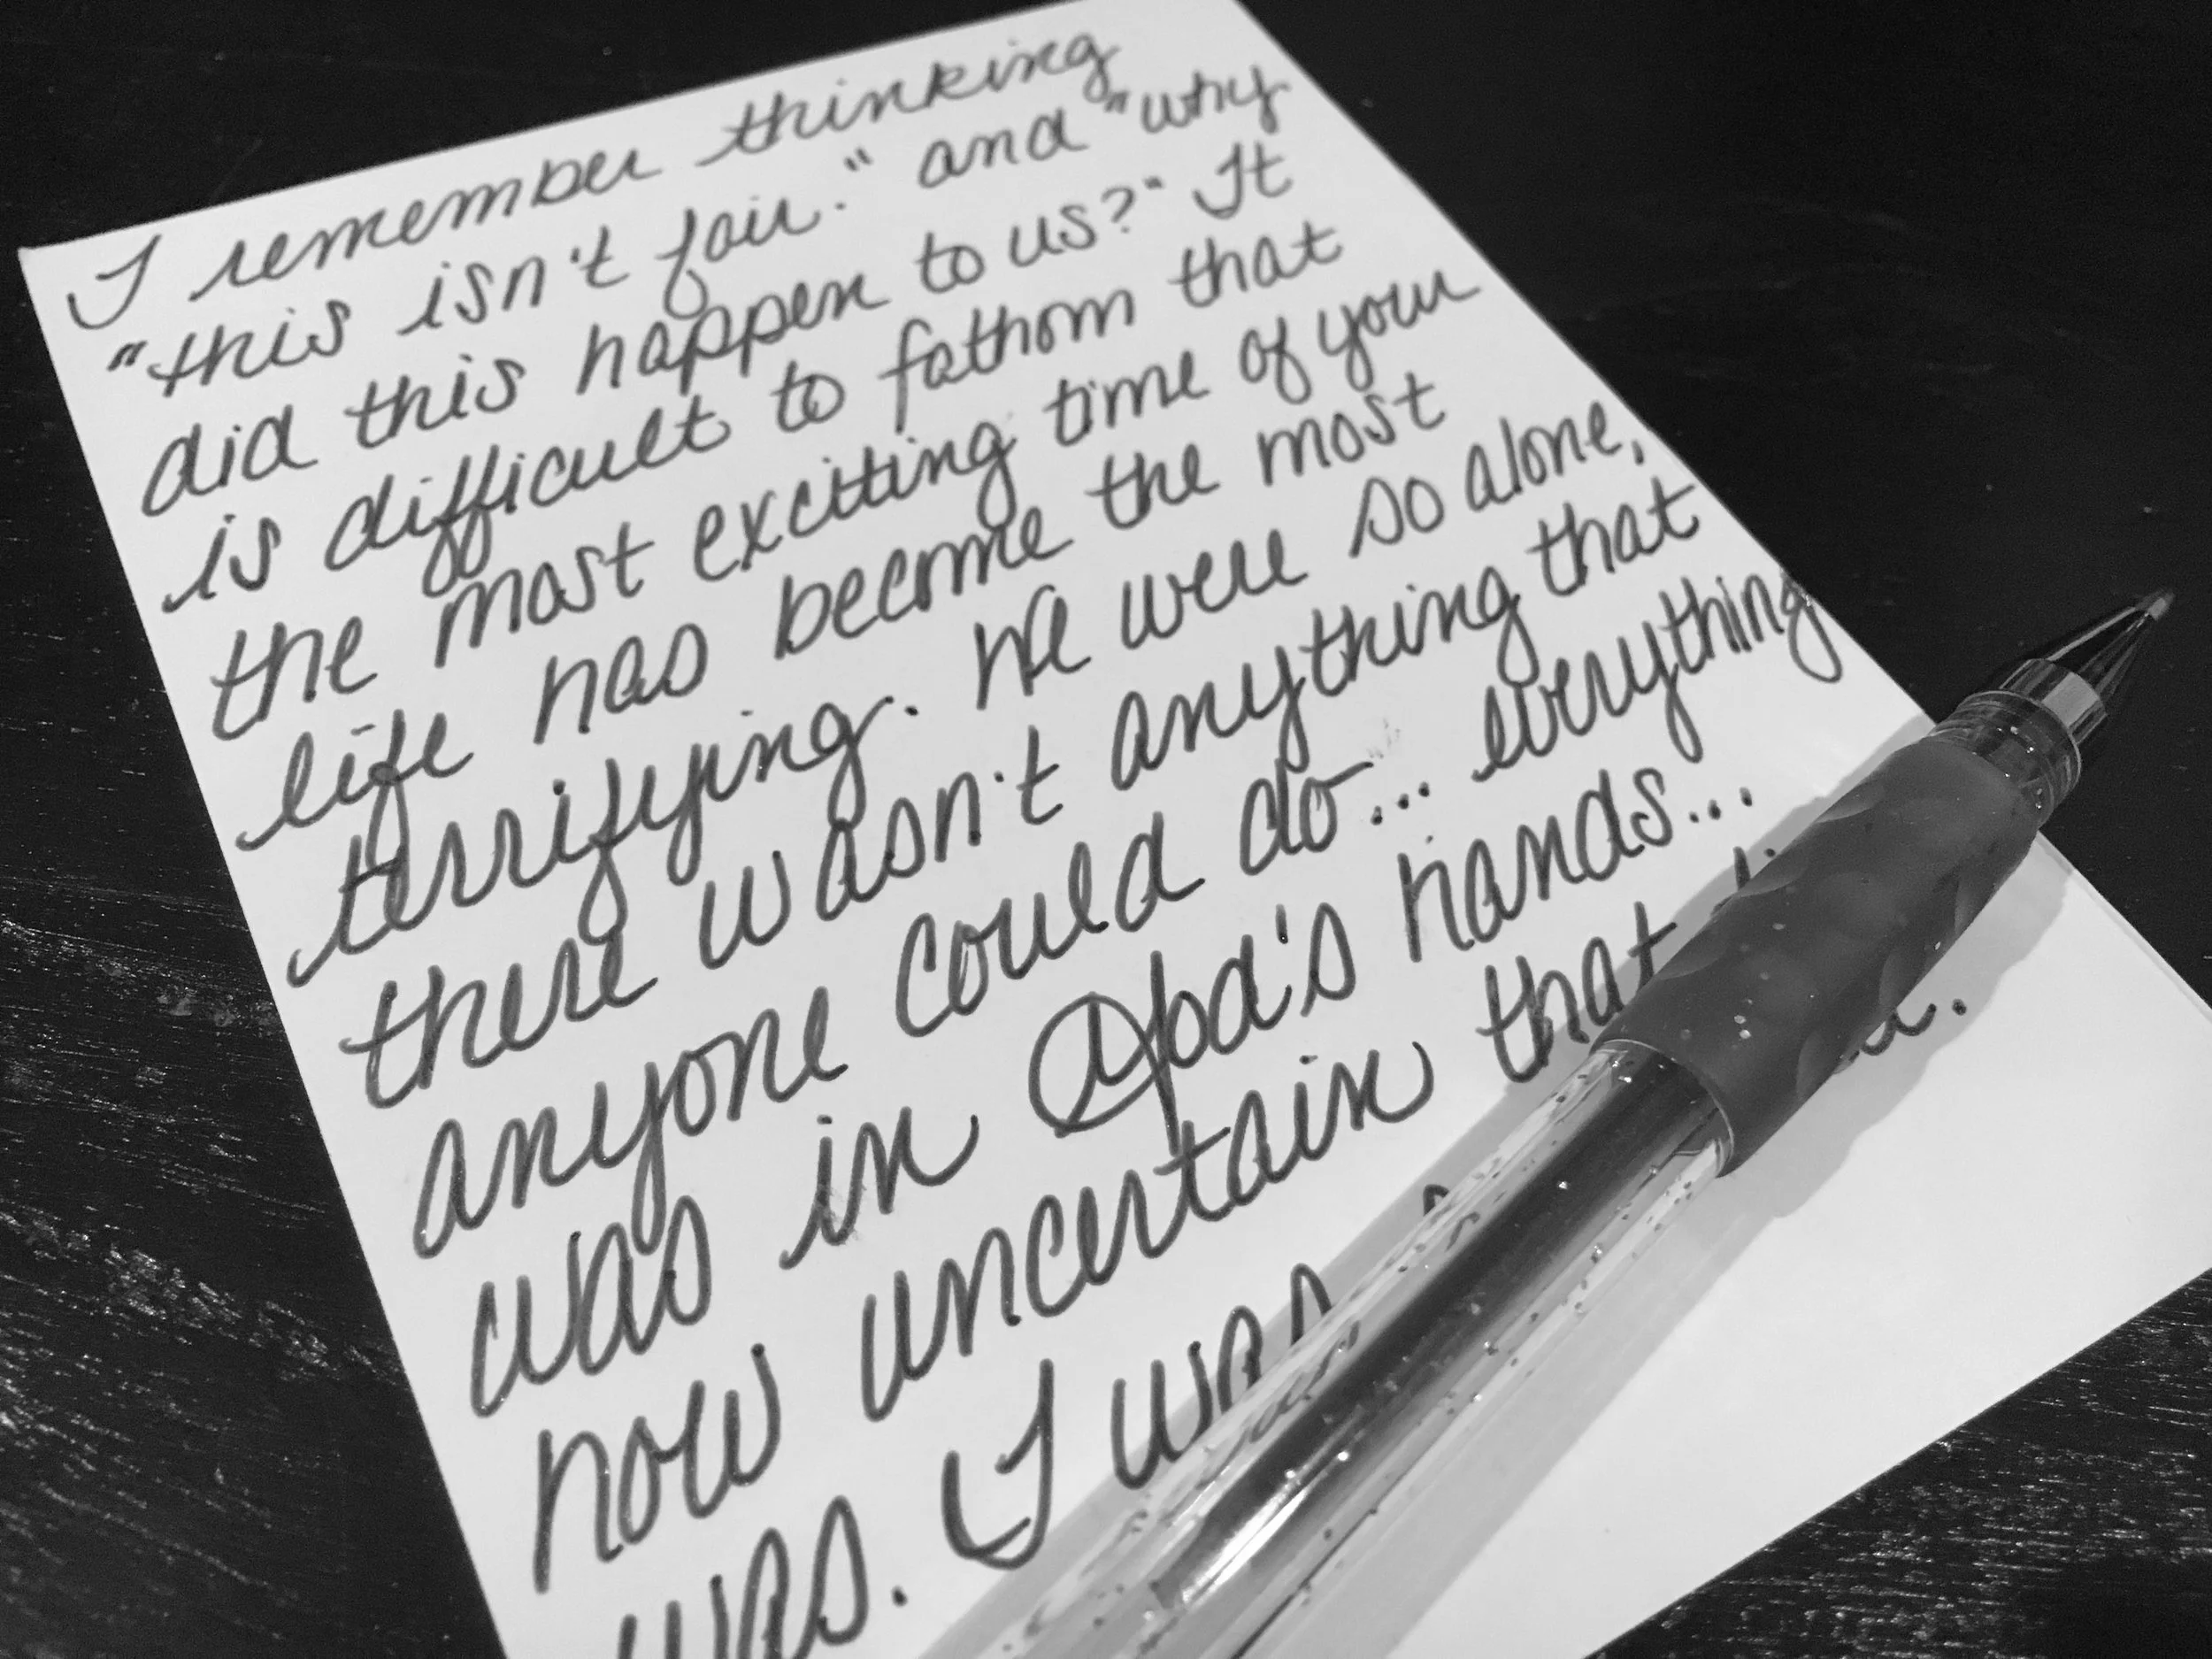 I remember thinking
"this isn't fair." and "why
did this happen to us?" It
is difficult to fathom that
the most exciting time of your
life has become the most
terrifying. We were so alone,
there wasn't anything that
anyone could do... everything
was in Aba's hands...
now uncertain that
was. I was